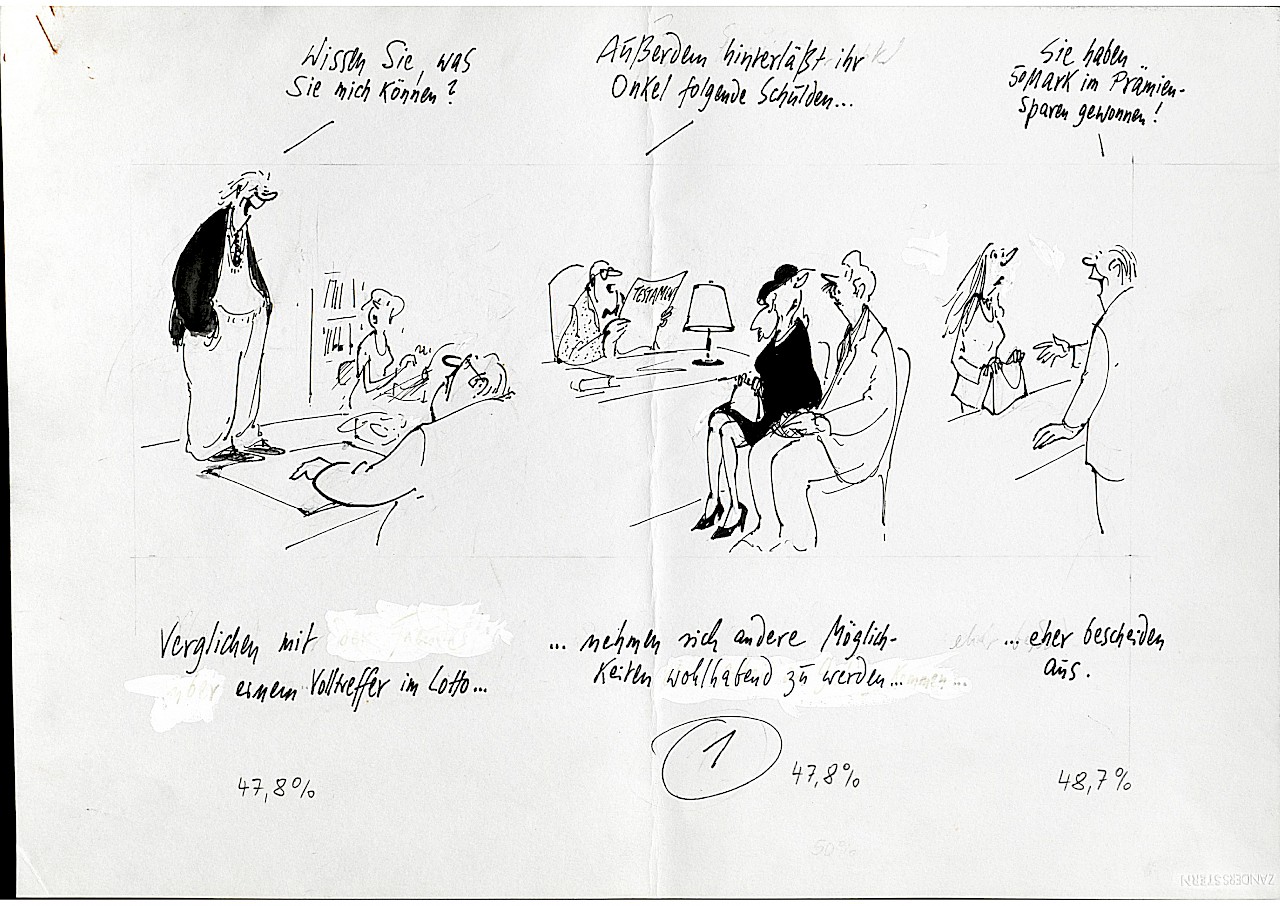 Wissen Sie, was
Sie mich können?
Außerdem hinterläßt ihr
Onkel folgende Schulden...
Sie haben
50 Mark im Prämien-
sparen gewonnen!
TESTAMENT
Verglichen mit
einem Volltreffer im Lotto...
... nehmen sich andere Möglich-
keiten wohlhabend zu werden...
... eher bescheiden
aus.
1
47,8%
47,8%
48,7%
50%
ZANDERS STERN